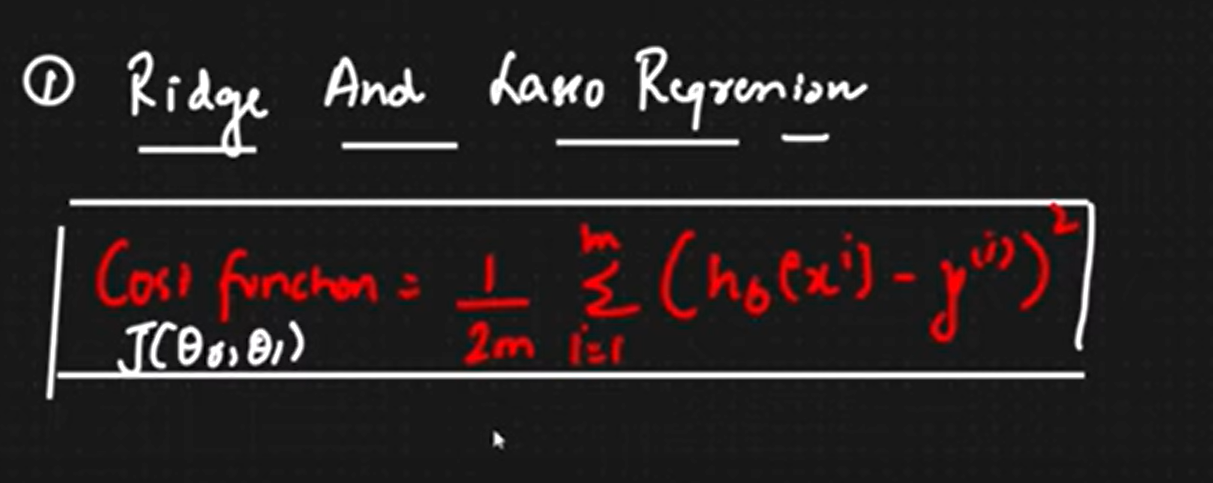 ① Ridge And Lasso Regression
Cost function = 1/2m m Σ i=1 (hθ(x^i) - y^(i))^2
J(θ0, θ1)